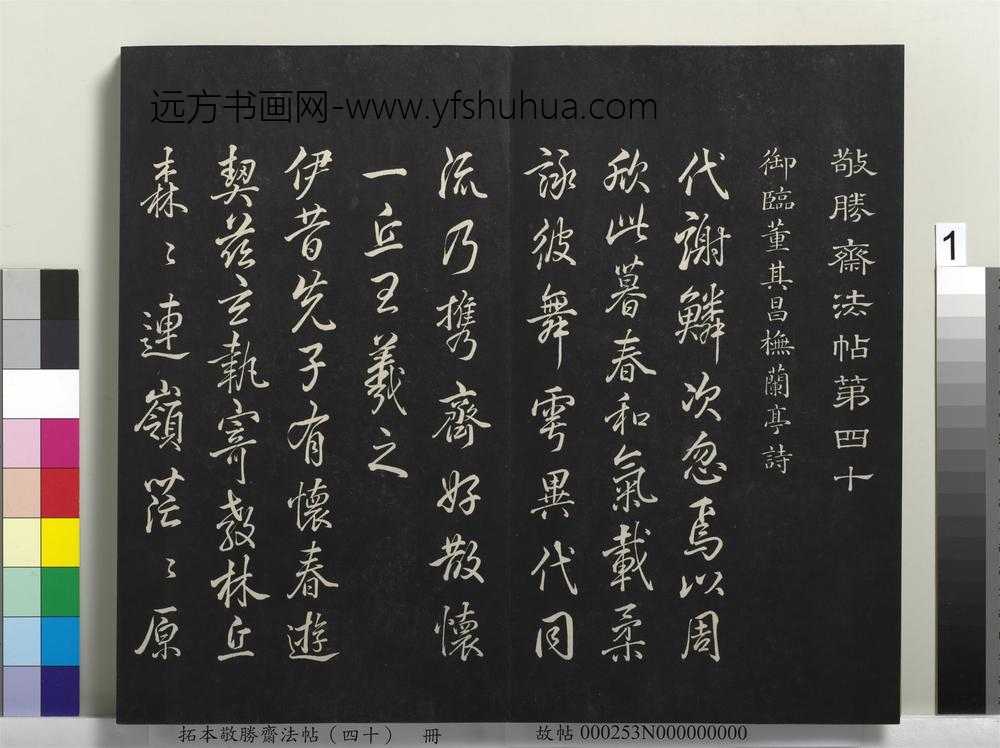 远方书画网-www.yfshuhua.com
敬勝齋法帖第四十
御臨董其昌橅蘭亭詩
代謝鱗次忽焉以周
欣此暮春和氣載柔
詠彼舞雩異代同
流乃攜齊好散懷
一丘王羲之
伊昔先子有懷春遊
契茲言執寄敖林丘
森〻連嶺茫〻原
1
拓本敬勝齋法帖（四十） 冊
故帖 000253N000000000